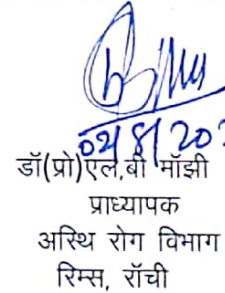 02/8/20
डॉ(प्रो)एल.बी मॉझी
प्राध्यापक
अस्थि रोग विभाग
रिम्स, रॉची